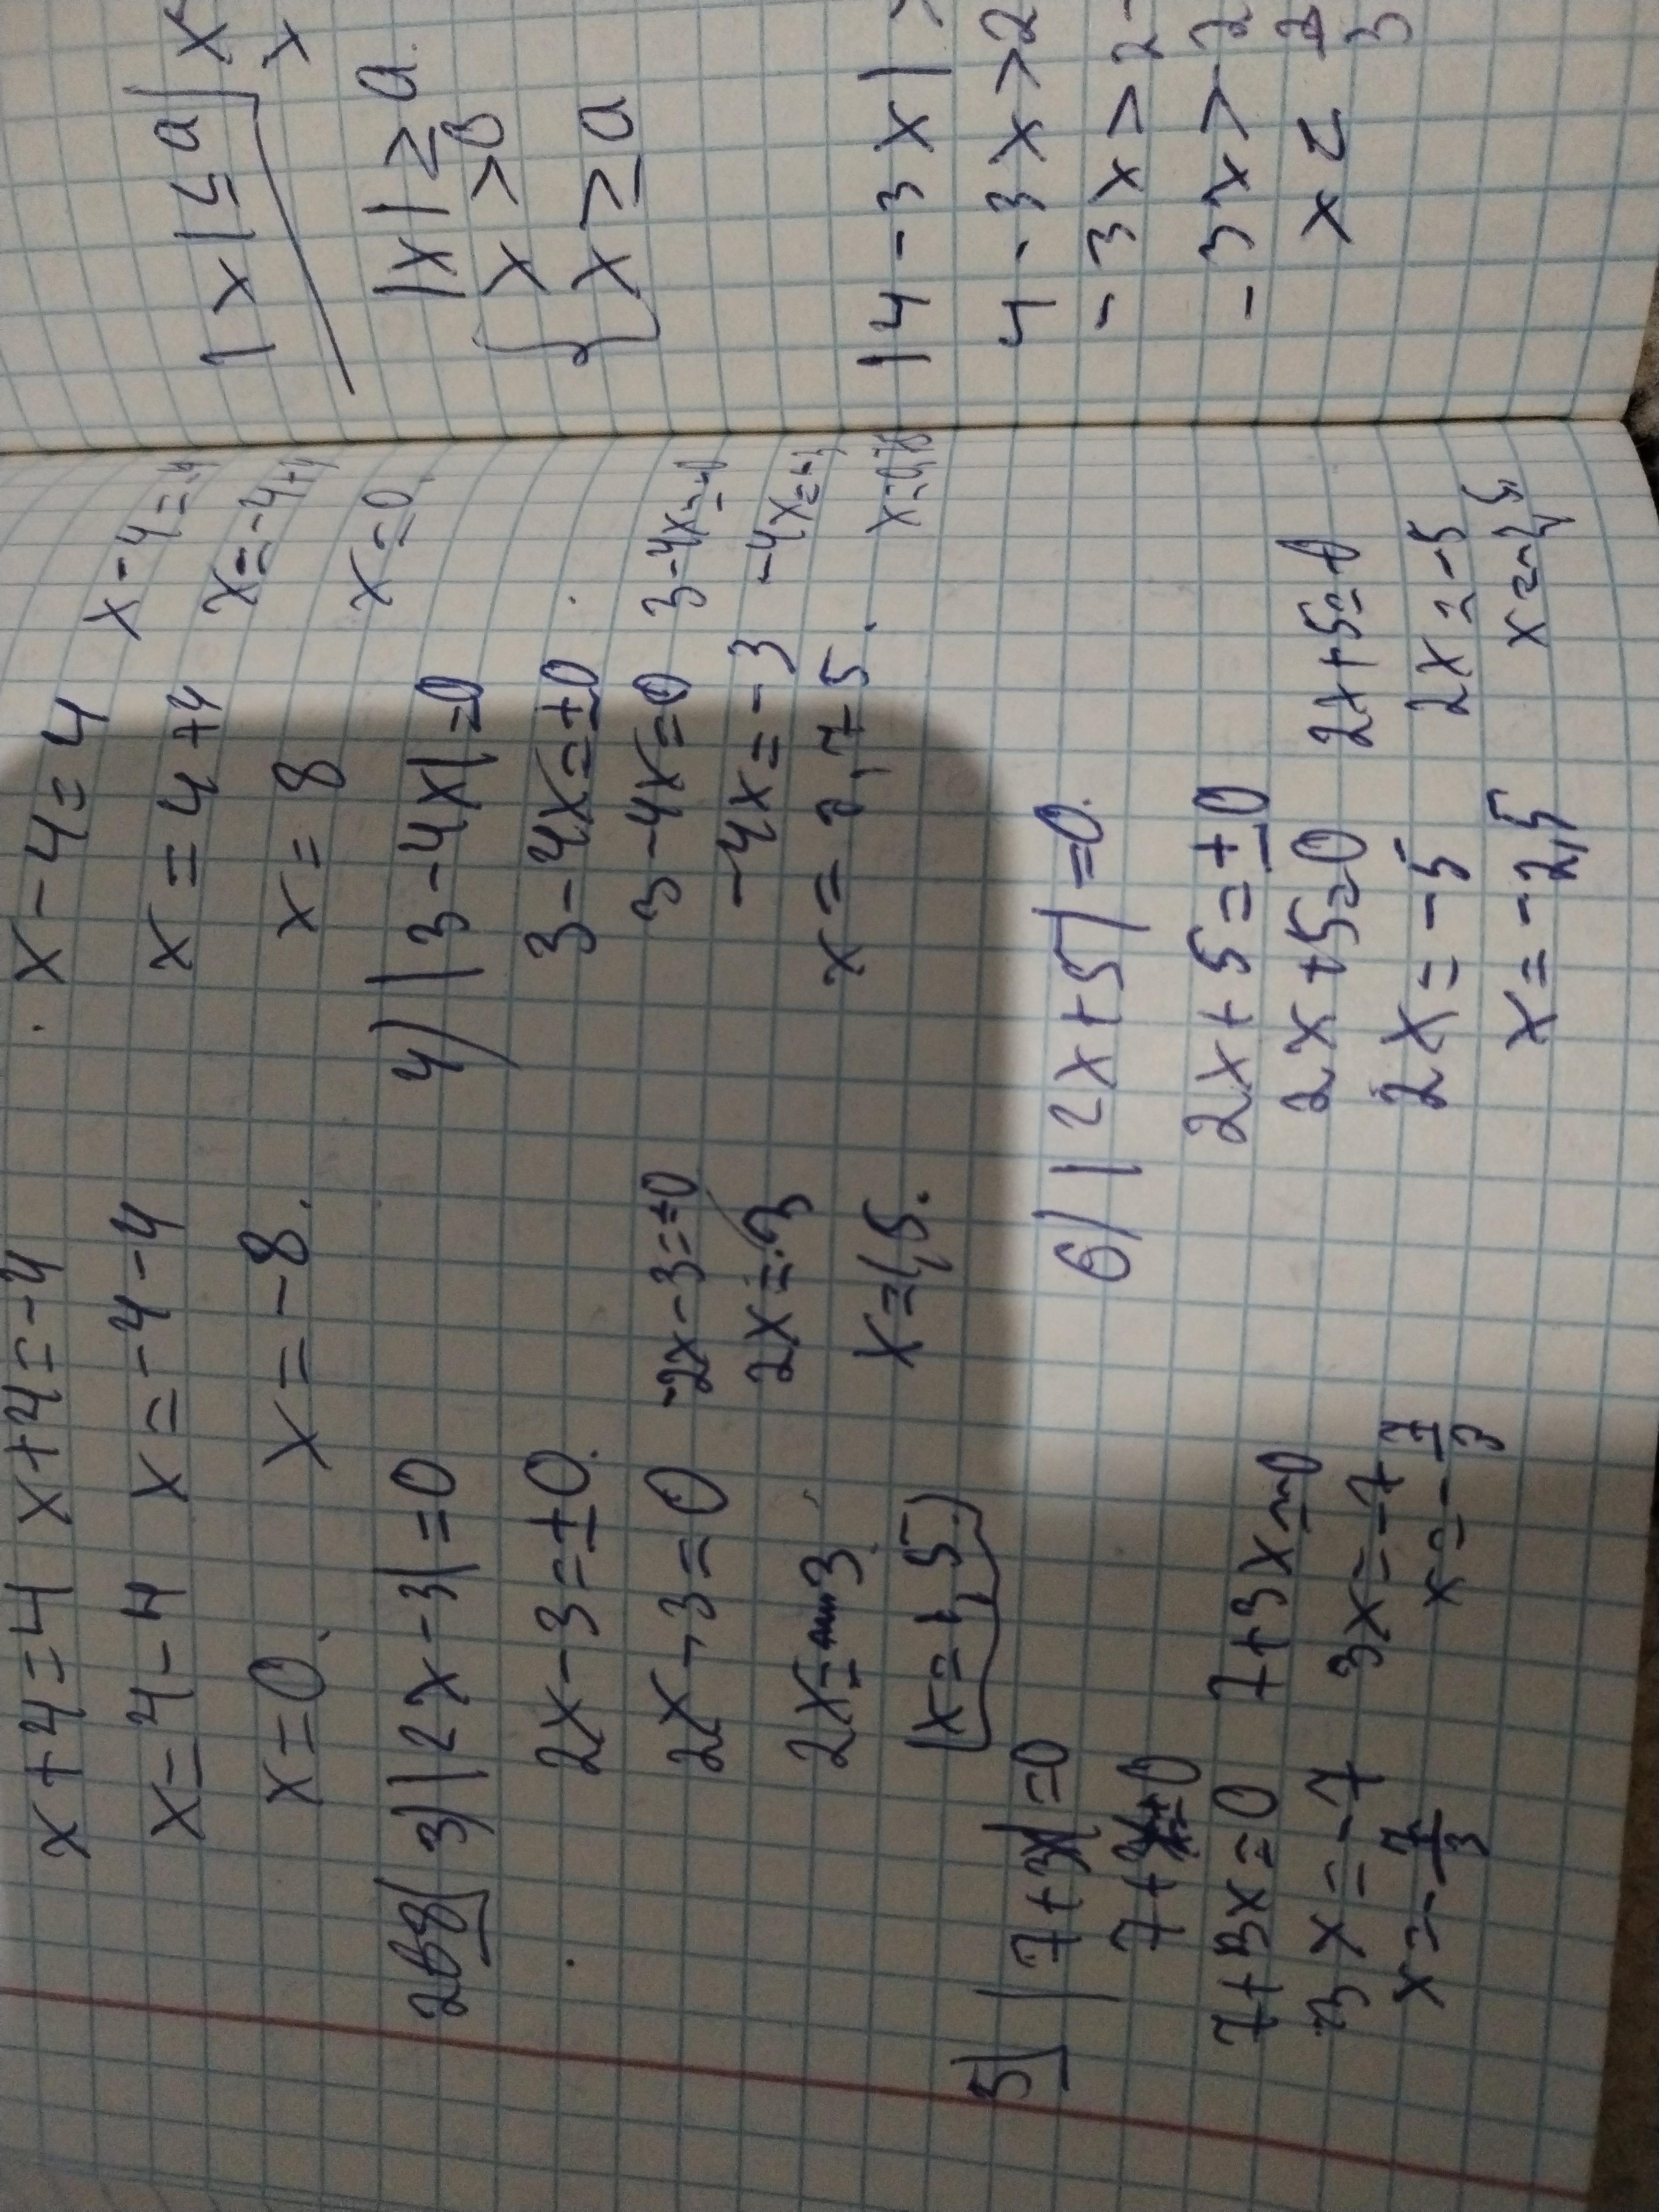 x+4=4 x+4=-4
x=4-4 x=-4-4
x=0. x=-8.
x-4=4 x-4=-4
x=4+4 x=-4+4
x=8 x=0.
268 3) |2x-3|=0
2x-3=±0.
2x-3=0 -2x-3=±0
2x= 3 2x=3
x=1,5. x=1,5.
4) |3-4x|=0
3-4x=±0
3-4x=0 3-4x=-0
-4x=-3 -4x=-3
x=0,75. x=0,75
5) |7+3x|=0
7+3x=±0
7+3x=0 7+3x=-0
3x=-7 3x=-7
x=-7/3 x=-7/3
6) |2x+5|=0.
2x+5=±0
2x+5=0 2x+5=-0
2x=-5 2x=-5
x=-2,5 x=-2,5
|x|≤a x
x
|x|≥a.
x>0
x≥a
|4-3x|>
4-3x>2
-3x>2-
-3x>-2
x<2/3